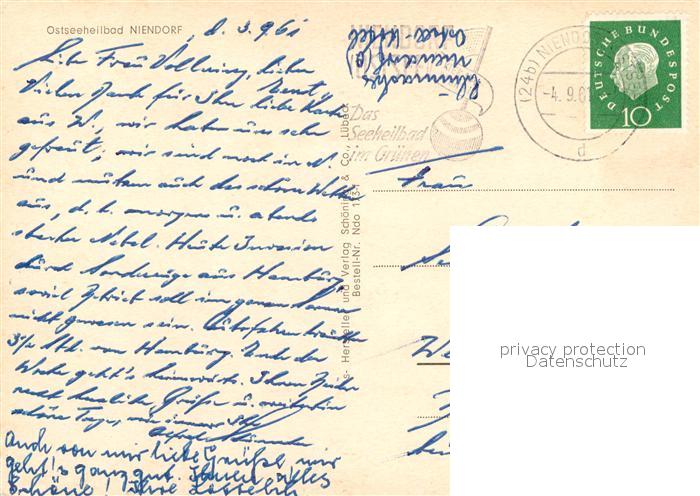 Ostseeheilbad NIENDORF, d. 3.9.61
Liebe Frau Vollming, lieber
Vielen Dank für Ihre liebe Karte
aus W., wir haben uns sehr
gefreut, wir sind noch in N.
und nutzen auch das schöne Wetter
aus, d. h. morgens u. abends
starker Nebel. Heute Invasion
durch Sonderzüge aus Hamburg,
soviel Betrieb soll im ganzen Sommer
nicht gewesen sein. Autofahrer
3½ Std. von Hamburg. Ende der
Woche geht's heimwärts. Ihnen
recht herzliche Grüße u. weiterhin
schöne Tage, wie immer Ihr
Alfred
Auch von mir liebe Grüße, mir
geht's ganz gut. Ihnen alles
Schöne! Ihre
NIENDORF
OSTSEE
Das
Seeheilbad
im Grünen
Niendorf (O)
(24b) NIENDORF
-4.9.61
d
DEUTSCHE BUNDESPOST
10
Hersteller und Verlag Schöning & Co., Lübeck
Bestell-Nr. Ndo
Frau
privacy protection
Datenschutz